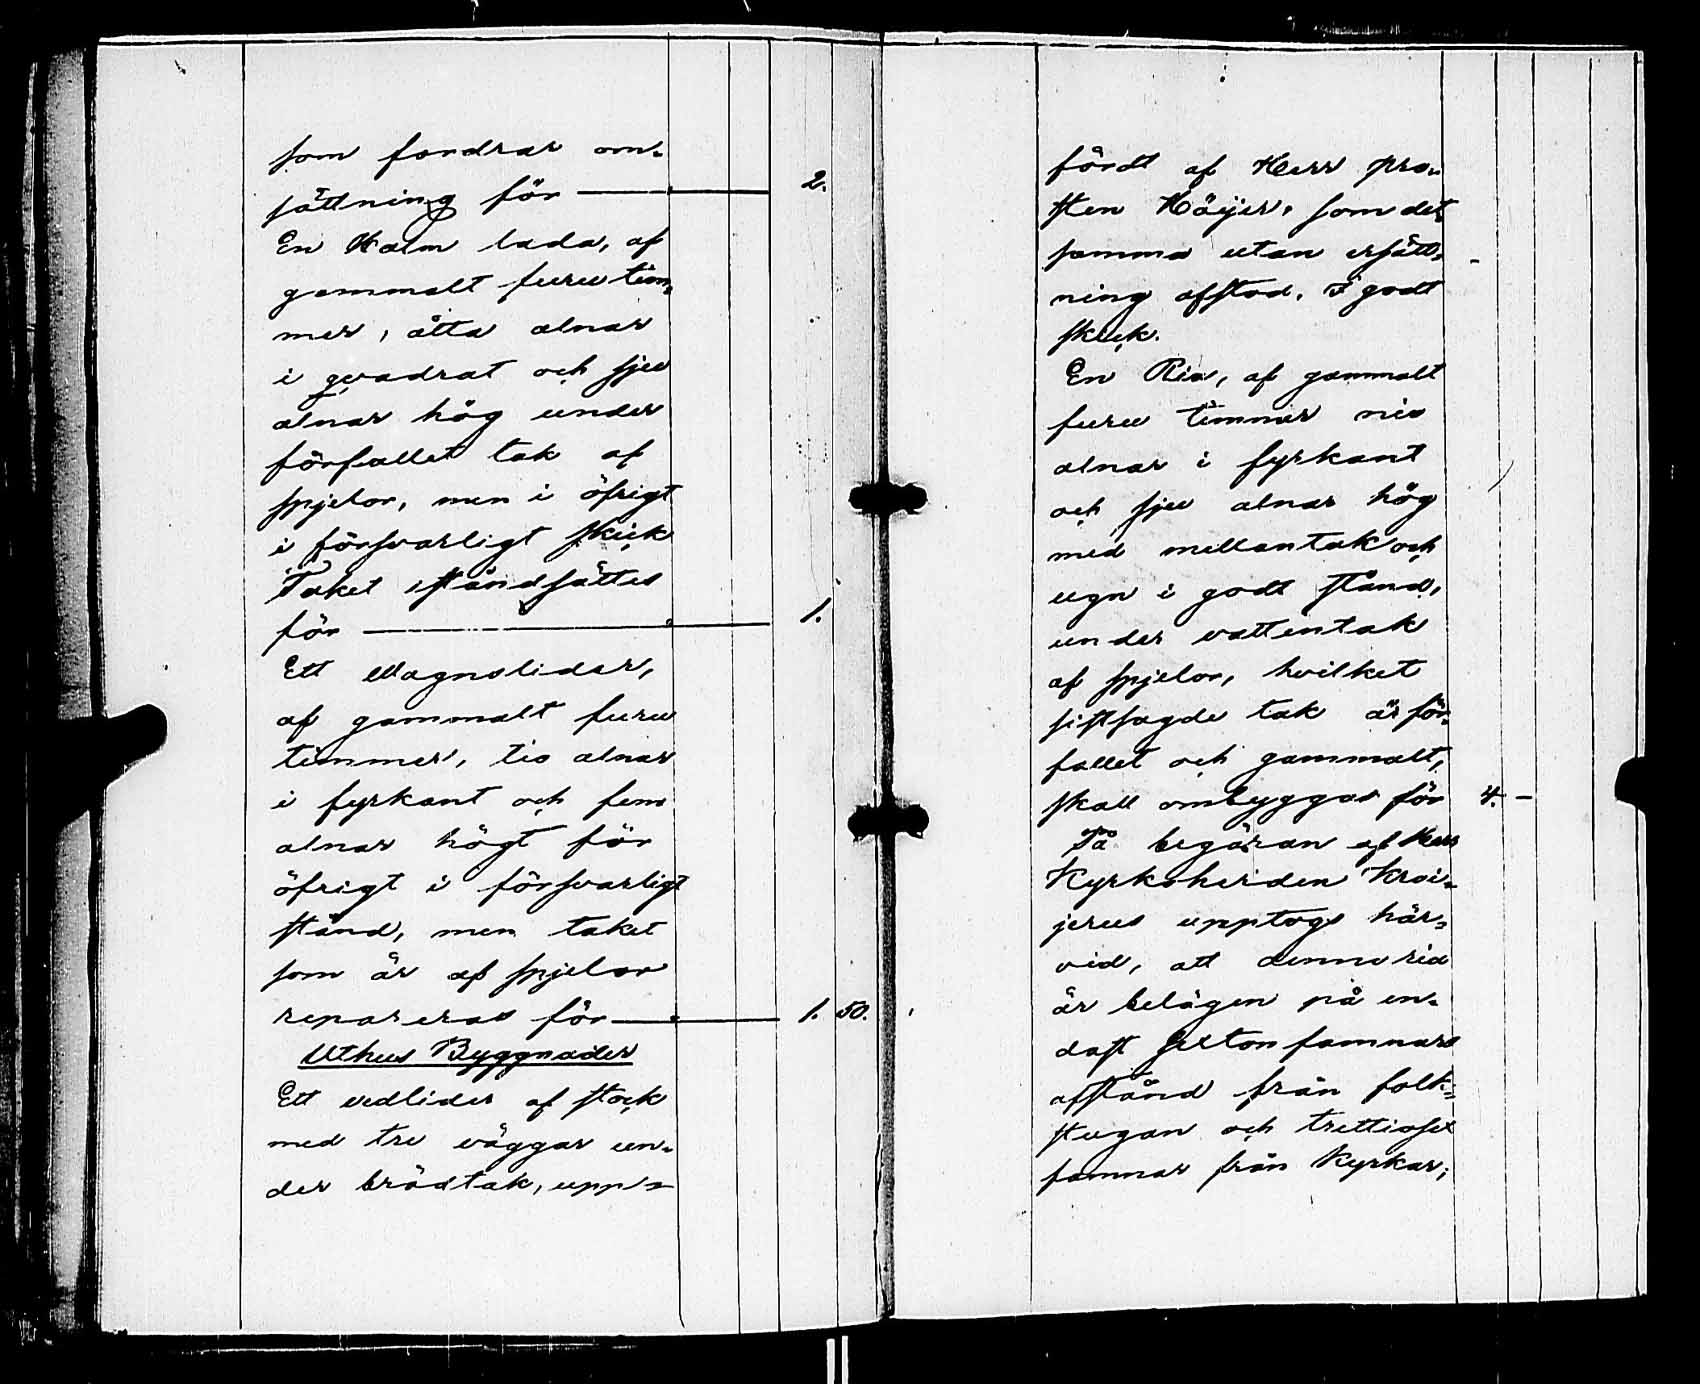 som fordrar om-
sättning för — 2.
En Halm lada, af
gammalt furu tim-
mer, åtta alnar
i qvadrat och sjeu
alnar hög under
förfallet tak af
spjelor, men i öfrigt
i försvarligt skick
Taket iståndsättes
för — 1.
Ett Wagnslider,
af gammalt furu
timmer, tio alnar
i fyrkant och fem
alnar högt för
öfrigt i försvarligt
stånd, men taket
som är af spjelor
repareras för — 1. 50.
Uthus Byggnader
Ett vedlider af stock
med tre väggar un-
der brädtak, upp-
fördt af Herr pro-
sten Höijer, som det
samma utan ersätt-
ning afstod. I godt
skick.
En Ria, af gammalt
furu timmer nio
alnar i fyrkant
och sjeu alnar hög
med mellantak och
ugn i godt stånd,
under vattentak
af spjelor, hvilket
sistsagde tak är för-
fallet och gammalt,
skall ombyggas för 4. —
På begäran af Herr
Kyrkoherden Kroi-
jerus upptogs här-
vid, att denna ria
är belägen på en-
dast sexton famnars
afstånd från folk-
stugan och trettiosex
famnar från Kyrkan;